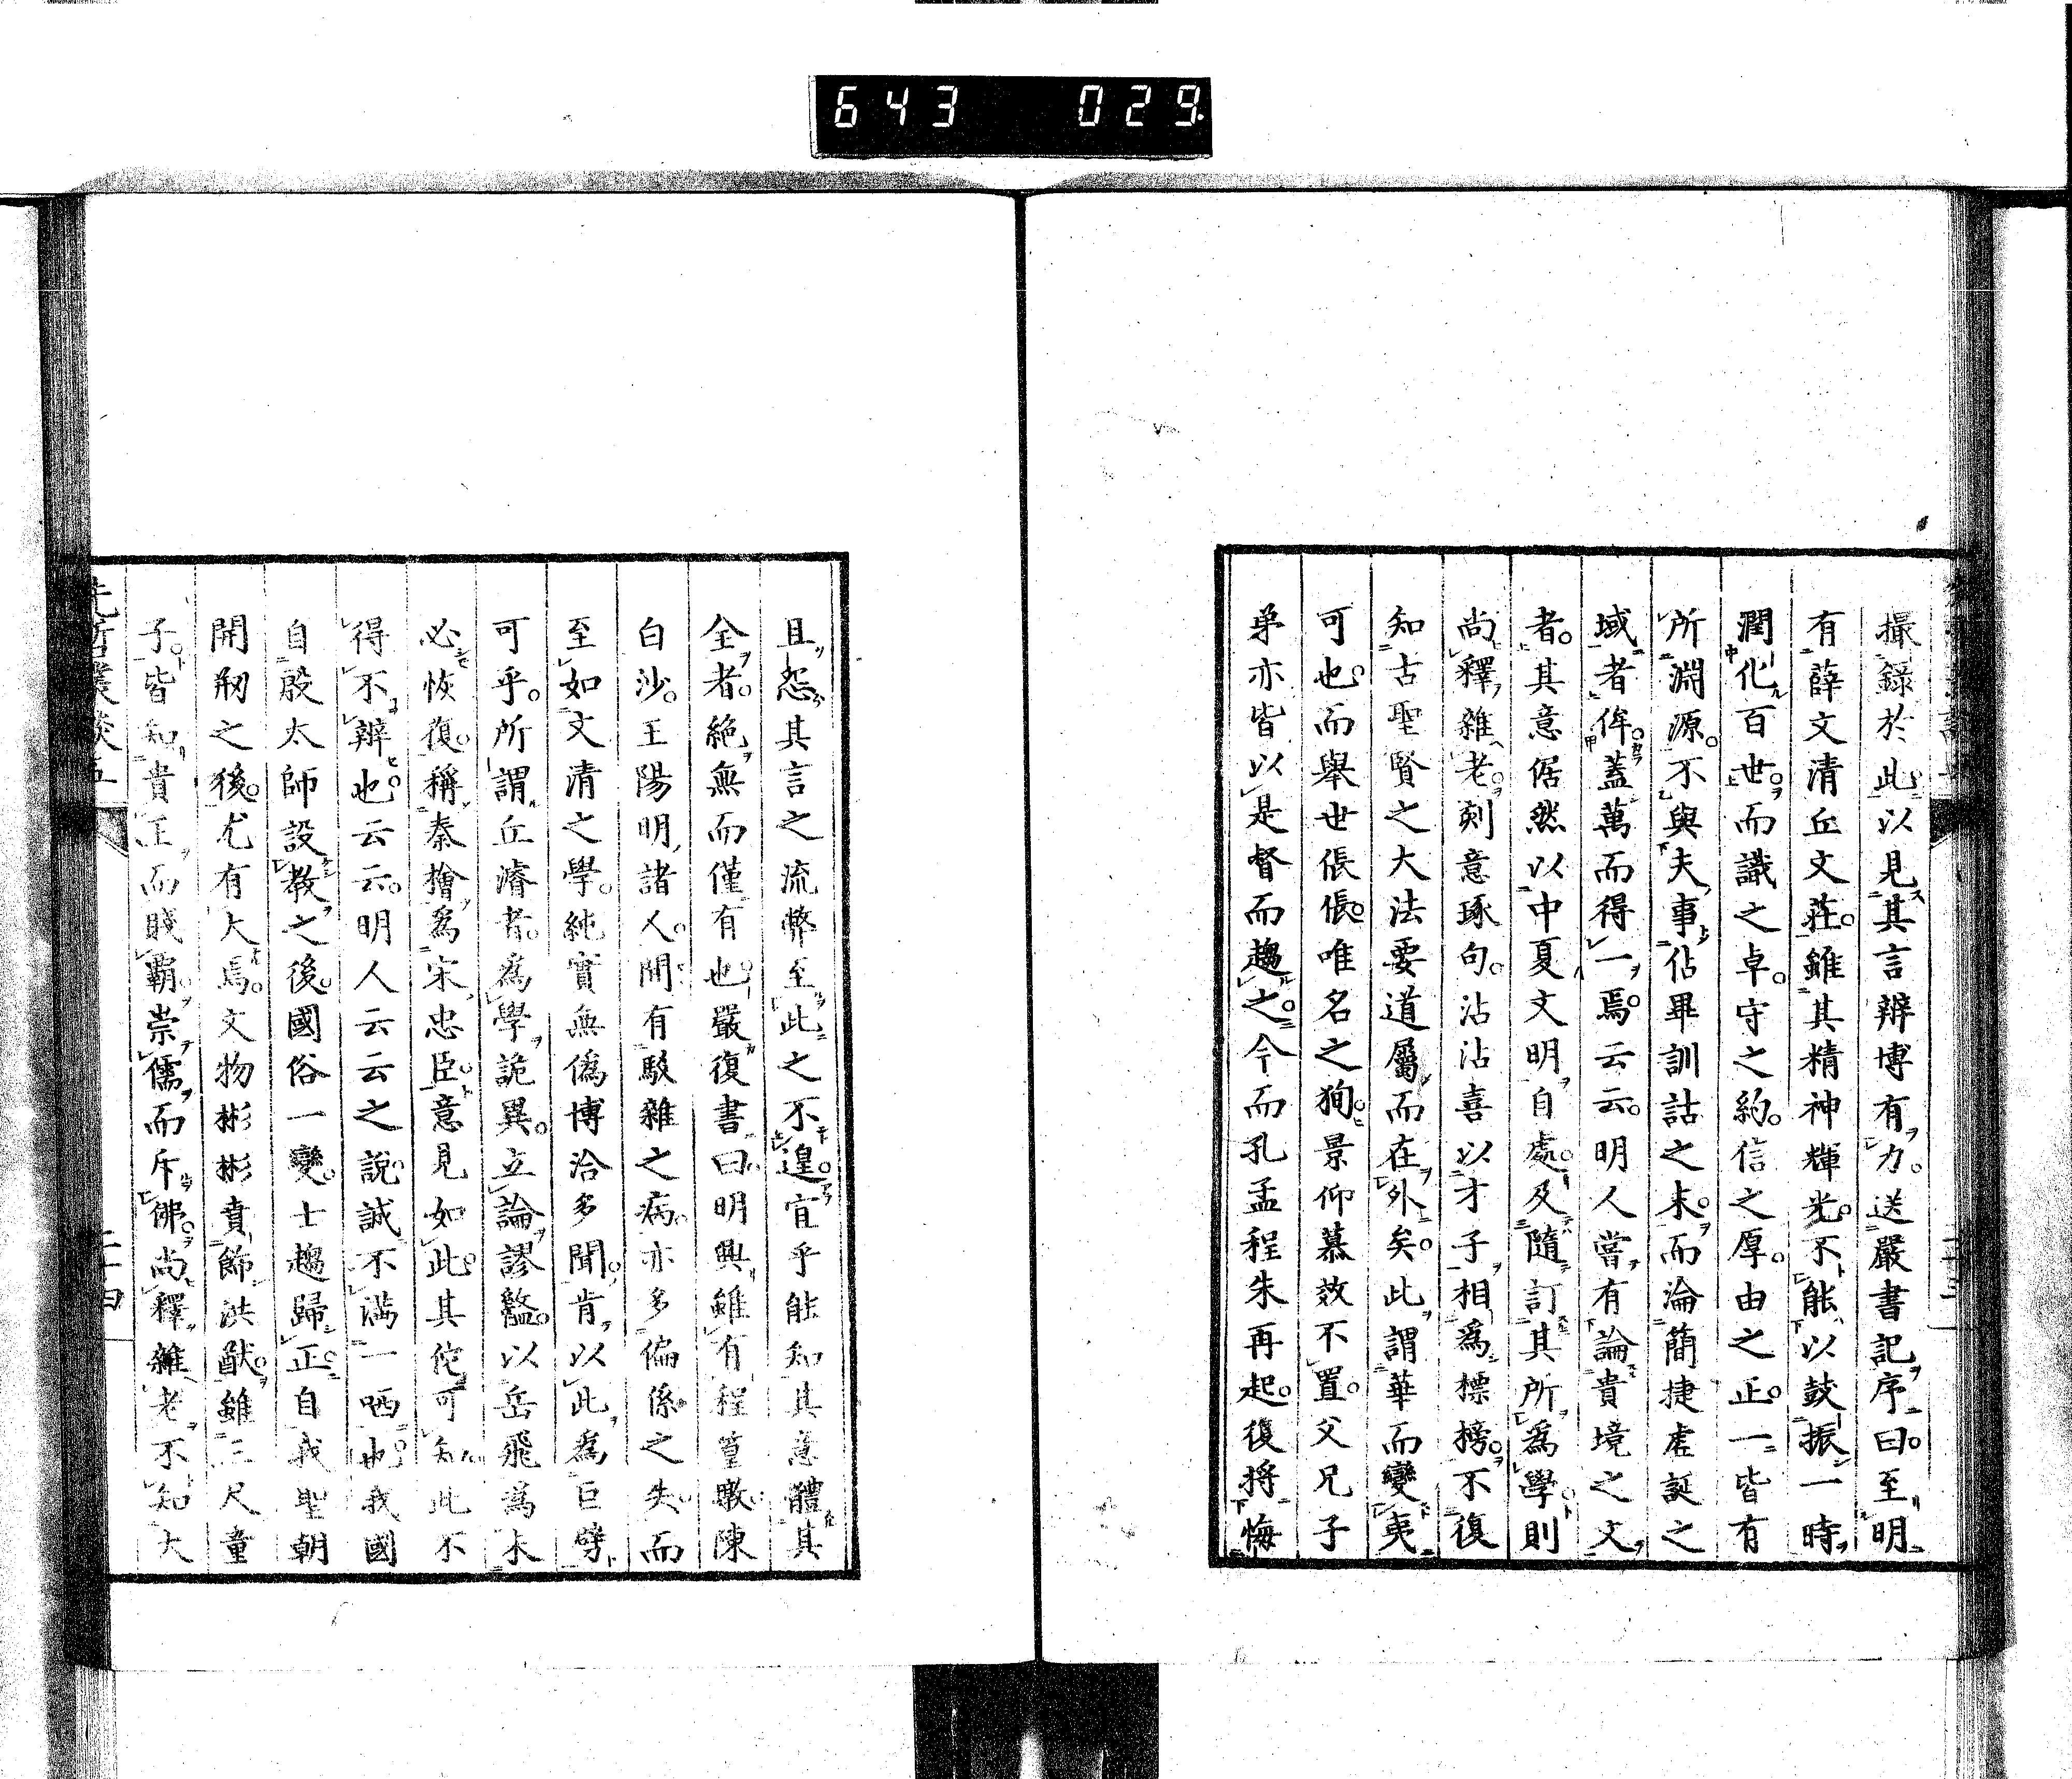 643 029
撮録於此以見其言辯博有力送嚴書記序曰至明
有薛文清丘文莊雖其精神輝光不能以鼓振一時
潤化百世而識之卓守之約信之厚由之正一皆有
所淵源不與夫事佔畢訓詁之末而淪簡捷虛誕之
域者侔蓋萬而得一焉云云明人嘗有論貴境之文
者其意倨然以中夏文明自處及隨訂其所爲學則
尚釋雜老剡意琢句沾沾喜以才子相爲標榜不復
知古聖賢之大法要道屬而在外矣此謂華而變夷
可也而擧世倀倀唯名之狥景仰慕效不置父兄子
弟亦皆以是督而趨之今而孔孟程朱再起復將悔
且怨其言之流弊至此之不遑宜乎能知其意體其
全者絶無而僅有也嚴復書曰明興雖有程篁墩陳
白沙王陽明諸人間有駁雜之病亦多偏係之失而
至如文清之學純實無僞博洽多聞肯以此爲巨擘
可乎所謂丘濬者爲學詭異立論謬盭以岳飛爲未
必恢復稱秦檜爲宋忠臣意見如此其佗可知此不
得不辯也云云明人云云之說誠不滿一哂也我國
自殷太師設敎之後國俗一變士趨歸正自我聖朝
開刱之後尤有大焉文物彬彬賁飾洪猷雖三尺童
子皆知貴王而賤霸崇儒而斥佛尚釋雜老不知大
先哲叢談五
二十四